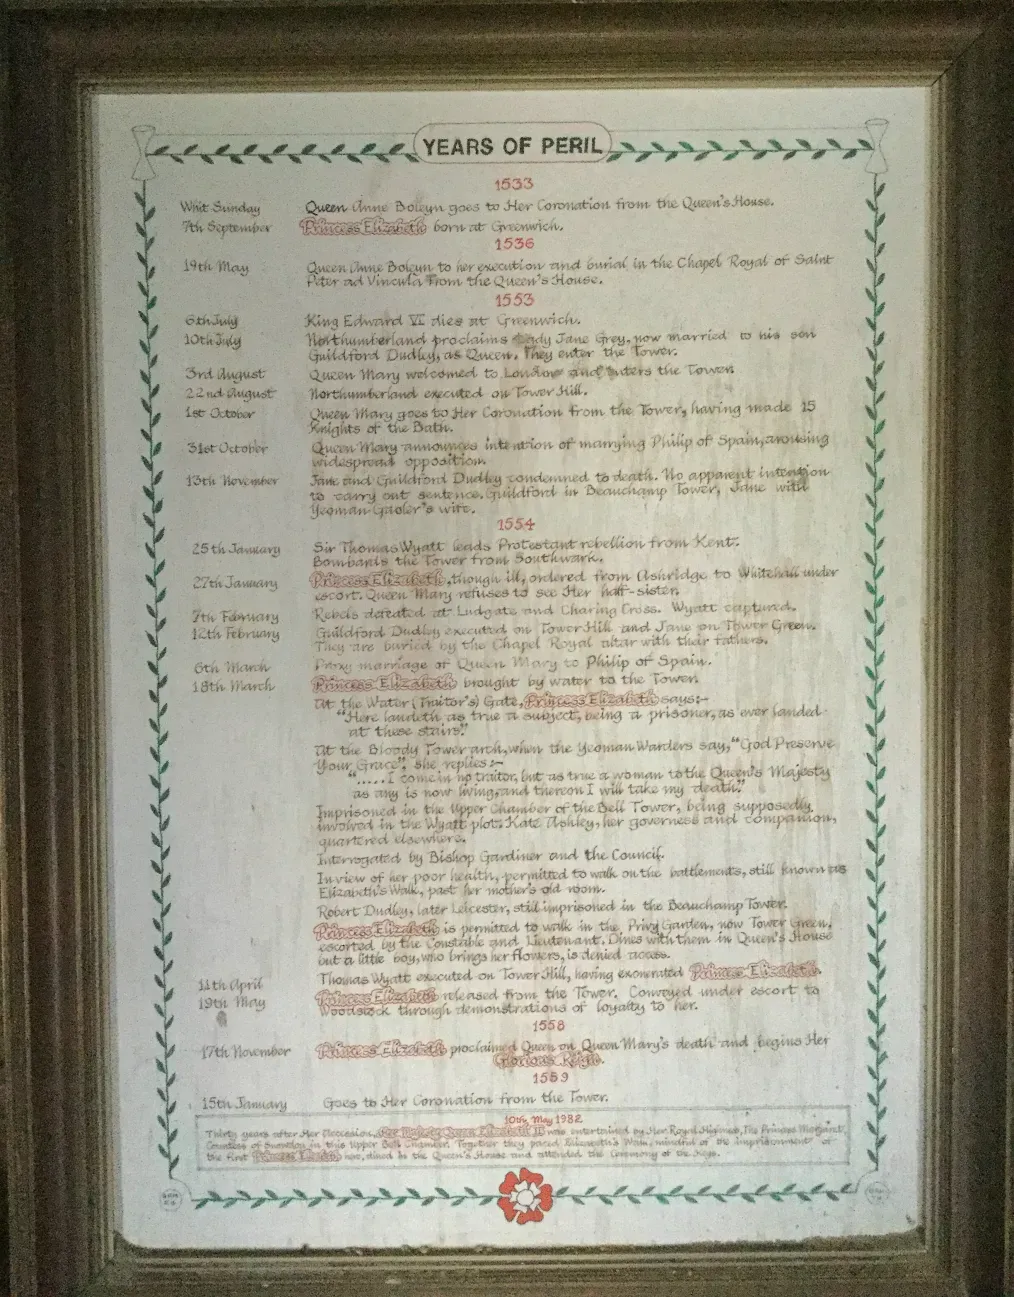 YEARS OF PERIL
1533
Whit Sunday Queen Anne Boleyn goes to Her Coronation from the Queen's House.
7th September Princess Elizabeth born at Greenwich.
1536
19th May Queen Anne Boleyn to her execution and burial in the Chapel Royal of Saint
Peter ad Vincula from the Queen's House.
1553
6th July King Edward VI dies at Greenwich.
10th July Northumberland proclaims Lady Jane Grey, now married to his son
Guildford Dudley, as Queen. They enter the Tower.
3rd August Queen Mary welcomed to London and enters the Tower.
22nd August Northumberland executed on Tower Hill.
1st October Queen Mary goes to Her Coronation from the Tower, having made 15
Knights of the Bath.
31st October Queen Mary announces intention of marrying Philip of Spain, arousing
widespread opposition.
13th November Jane and Guildford Dudley condemned to death. No apparent intention
to carry out sentence. Guildford in Beauchamp Tower, Jane with
Yeoman Gaoler's wife.
1554
25th January Sir Thomas Wyatt leads Protestant rebellion from Kent.
Bombards the Tower from Southwark.
27th January Princess Elizabeth, though ill, ordered from Ashridge to Whitehall under
escort. Queen Mary refuses to see Her half-sister.
7th February Rebels defeated at Ludgate and Charing Cross. Wyatt captured.
12th February Guildford Dudley executed on Tower Hill and Jane on Tower Green.
They are buried by the Chapel Royal altar with their fathers.
6th March Proxy marriage of Queen Mary to Philip of Spain.
18th March Princess Elizabeth brought by water to the Tower.
At the Water (Traitor's) Gate, Princess Elizabeth says:-
"Here landeth as true a subject, being a prisoner, as ever landed
at these stairs."
At the Bloody Tower arch, when the Yeoman Warders say, "God Preserve
Your Grace". she replies:-
"..... I come in no traitor, but as true a woman to the Queen's Majesty
as any is now living, and thereon I will take my death."
Imprisoned in the Upper Chamber of the Bell Tower, being supposedly
involved in the Wyatt plot. Kate Ashley, her governess and companion,
quartered elsewhere.
Interrogated by Bishop Gardiner and the Council.
In view of her poor health, permitted to walk on the battlements, still known as
Elizabeth's Walk, past her mother's old room.
Robert Dudley, later Leicester, still imprisoned in the Beauchamp Tower.
Princess Elizabeth is permitted to walk in the Privy Garden, now Tower Green,
escorted by the Constable and Lieutenant. Dines with them in Queen's House
but a little boy, who brings her flowers, is denied access.
11th April Thomas Wyatt executed on Tower Hill, having exonerated Princess Elizabeth.
19th May Princess Elizabeth released from the Tower. Conveyed under escort to
Woodstock through demonstrations of loyalty to her.
1558
17th November Princess Elizabeth proclaimed Queen on Queen Mary's death and begins Her
Glorious Reign.
1559
15th January Goes to Her Coronation from the Tower.
10th May 1982
Thirty years after Her Accession, Her Majesty Queen Elizabeth II was entertained by Her Royal Highness, The Princess Margaret,
Countess of Snowdon in this Upper Bell Together they paced Elizabeth's Walk, mindful of the imprisonment of
the first Princess Elizabeth here, dined in the Queen's House and attended the Ceremony of the Keys.